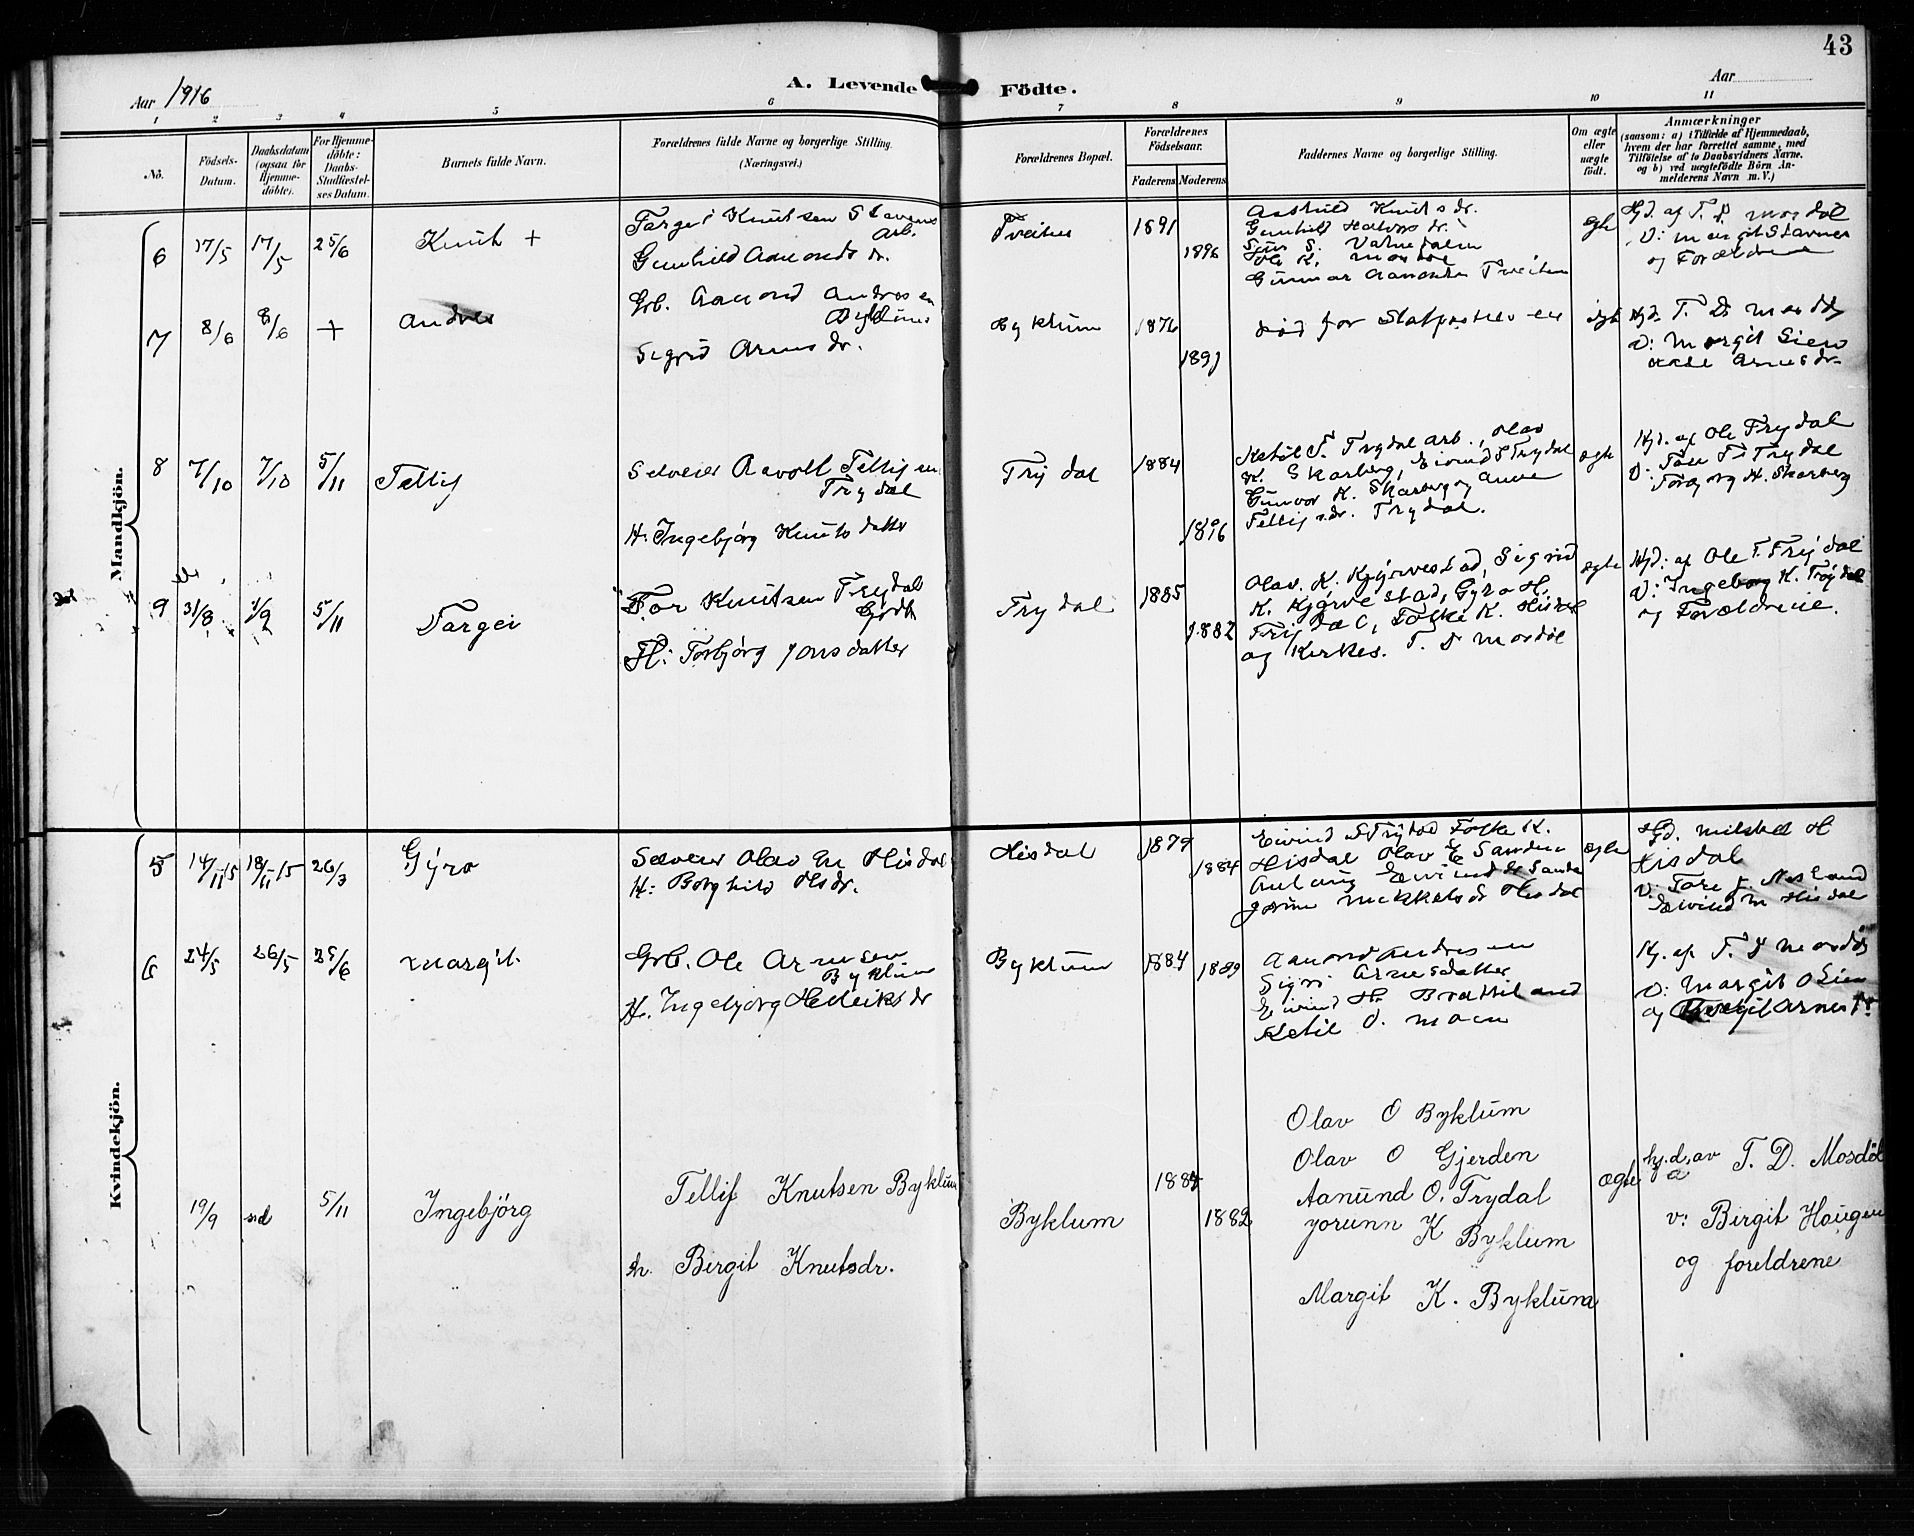 43
Aar 1916
A. Levende Födte.
Aar
1 2 3 4 5 6 7 8 9 10 11
No.
Födsels-
Datum.
Daabsdatum
(ogsaa for
Hjemme-
döbte).
For Hjemme-
döbte:
Daabs-
Stadfæstel-
ses Datum.
Barnets fulde Navn.
Forældrenes fulde Navne og borgerlige Stilling.
(Næringsvei.)
Forældrenes Bopæl.
Forældrenes
Födselsaar.
Faderens. Moderens.
Faddernes Navne og borgerlige Stilling.
Om ægte
eller
uægte
födt.
Anmærkninger
(saasom: a) i Tilfælde af Hjemmedaab,
hvem der har forrettet samme, med
Tilföielse af to Daabsvidners Navne.
og b) ved uægtefödte Börn An-
melderens Navn m. V.)
Mandkjön.
6 17/5 17/5 25/6 Knut +
Targei Knutsen Stavenes
Arb.
Gunhild Aamonds dr.
Tveiten 1891
1896
Aashild Knuts dr.
Gunhild Halvors dr.
S. Vatnedalen
Ole K. Mosdöl
Gunnar Aamonsen Tveiten
ægte
Hjd. af T. D. Mosdöl
V: Margit Stavnes
og Forældrene
7 8/6 8/6 + Andres
Grb. Aamond Andresen
Byklum
Sigrid Arnes dr.
Byklum 1876
1891
död för Stafæstelsen
ægte
Hjd. T. D. Mosdöl
V: Margit Lien
Arnesdr.
8 7/10 7/10 5/11 Tellif
Selveier Ravolt Tellifsen
Trydal
H: Ingebjörg Knutsdatter
Trydal 1884
1896
Ketil T. Trydal arb., Olav
K. Skarberg, Eivind S Trydal
Gunvor K. Skarberg og Anne
Tellifsdr. Trydal.
ægte
Hjd. af Ole Trydal
V: Tone T. Trydal
Torbjörg H. Skarberg
9 31/8 1/9 5/11 Targei
Tor Knutsen Trydal
Grdb
H: Torbjörg Jonsdatter
Trydal 1885
1882
Olav. K. Kjörvestad, Sigrid
K. Kjörvestad, Gyro H.
Trydal, Folke K. Hisdal
og Kirkes. T. D Mosdöl
ægte
Hjd: af Ole T. Trydal
V: Ingeborg K. Trydal
og Forældrene.
Kvindekjön.
5 14/11 15 18/11 15 26/3 Gyro
Selveier Olav M Hisdal
H: Borghild Olsdr.
Hisdal 1879
1884
Eivind S Trydal Folke K.
Hisdal Olav E Sanden
Aslaug Eivindsdr Sanden
Jorun Mikkelsdr Hisdal
ægte
Hjd. Mikkel H
Hisdal
V: Tore J. Nesland
Eivind M Hisdal
6 24/5 26/5 25/6 Margit.
Grb. Ole Arnesen
Byklum
H. Ingebjörg Hederiksdr
Byklum 1884 1889
Aamond Andresen
Sigri Arnesdatter
Eivind H. Brattland
Ketil O. Moen
Hj. af T. D Mosdöl
V: Margit O Lien
og Margit Arnesdr
19/9 sd 5/11 Ingebjörg
Tellif Knutsen Byklum
h. Birgit Knutsdr.
Byklum 1884
1882
Olav O Byklum
Olav O Gjerden
Aanund O. Trydal
Jorunn K Byklum
Margit K. Byklum
ægte
hj.d. av T. D. Mosdöl
v: Birgit Haugen
og foreldrene